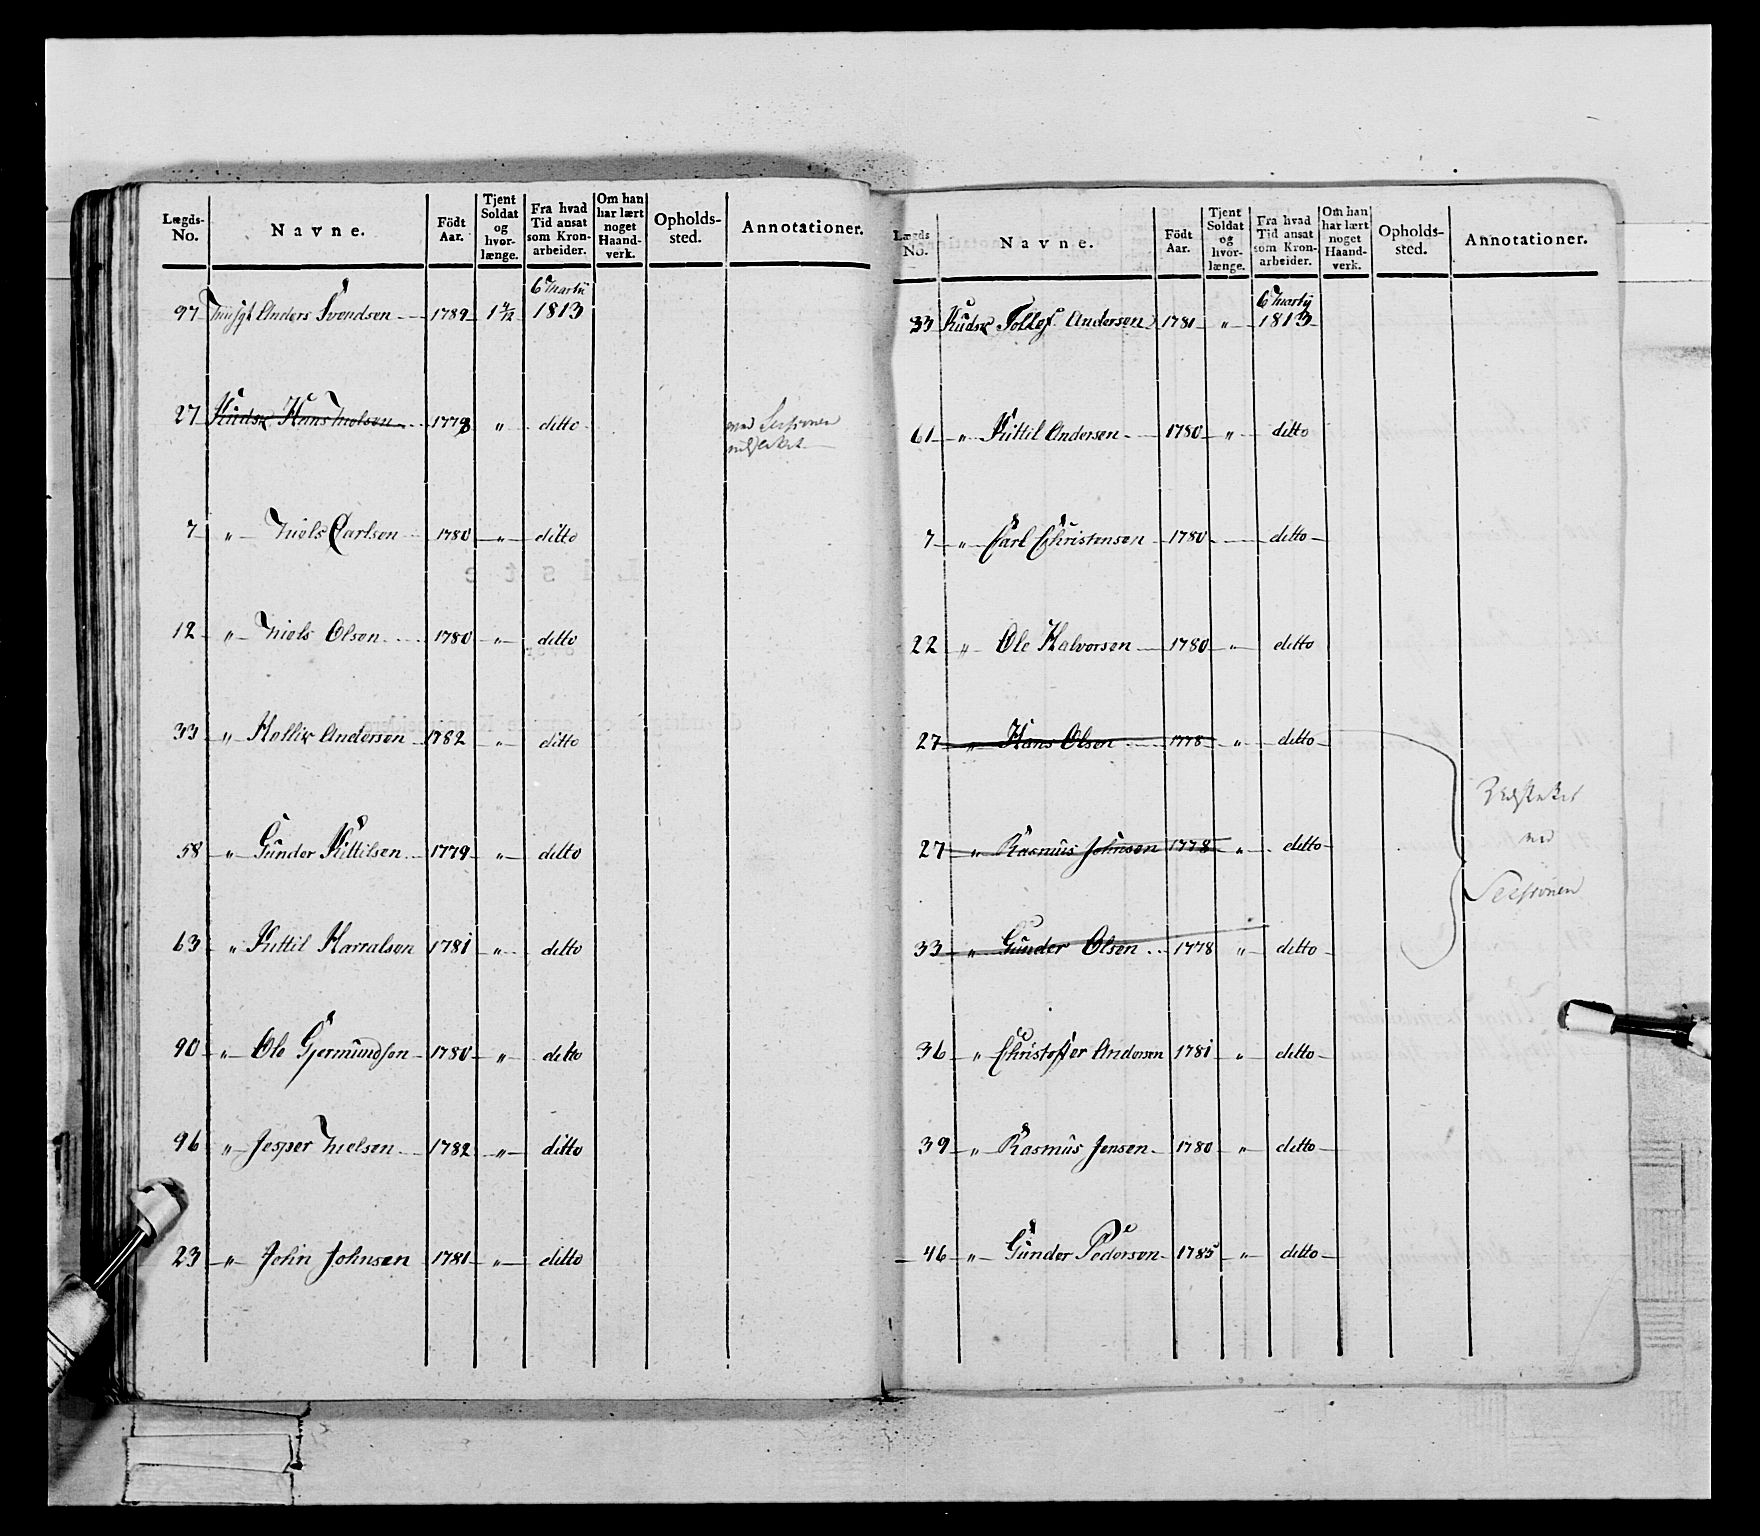 Lægds- No. Navne. Födt Aar. Tjent Soldat og hvor- længe. Fra hvad Tid ansat som Kron- arbeider. Om han har lært noget Haand- verk. Opholds- sted. Annotationer.
6 Martii
97 Anders Svendsen 1789 1 4/12 1813
27 Kudsk Hans Nielsen 1778 " ditto med Sessionen
udslettet
7 " Niels Carlsen 1780 " ditto
12 " Niels Olsen 1780 " ditto
33 " Andersen 1782 " ditto
58 " Gunder Kittilsen 1779 " ditto
63 " Kittil Harralsen 1781 " ditto
90 " Ole Gjermundsen 1780 " ditto
96 " Jesper Nielsen 1782 " ditto
23 " John Johnsen 1781 " ditto
Lægds No. Navne. Födt Aar. Tjent Soldat og hvor- længe. Fra hvad Tid ansat som Kron- arbeider. Om han har lært noget Haand- verk. Opholds- sted. Annotationer.
6 Martij
33 Kudsk Tollef Andersen 1781 " 1813
61 " Kittil Andersen 1780 " ditto
7 " Carl Christensen 1780 ditto
22 " Ole Halvorsen 1780 " ditto
27 " Hans Olsen 1778 " ditto
Udslettet
ved
Sessionen
27 " Rasmus Johnsen 1778 " ditto
33 " Gunder Olsen 1778 " ditto
36 " Christoffer Andersen 1781 " ditto
39 " Rasmus Jensen 1780 " ditto
46 " Gunder Pedersen 1785 " ditto